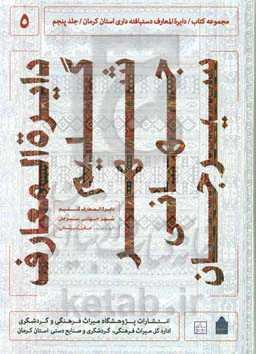 مجموعه کتاب / دایرةالمعارف دستبافته داری استان کرمان / جلد پنجم
۵
دایرةالمعارف
گلیم
شهر
جهانی
سیرجان
دایرةالمعارف گلیم
شهر جهانی سیرجان
انتشارات پژوهشگاه میراث فرهنگی و گردشگری
اداره کل میراث فرهنگی، گردشگری و صنایع دستی استان کرمان
ketab.ir